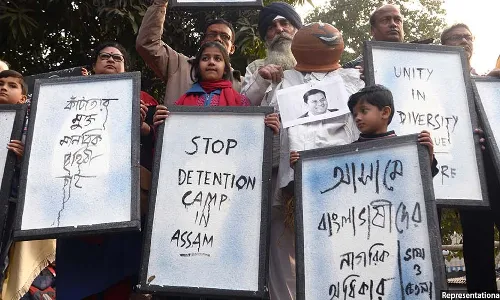 কাঁটাতার
মুক্ত
মানবিক
পৃথিবী
চাই
STOP
DETENTION
CAMP IN
ASSAM
UNITY
IN
DIVERSITY
আসামে
বাংলাভাষীদের
নাগরিক
অধিকার
ভাষা
ও
Representationa